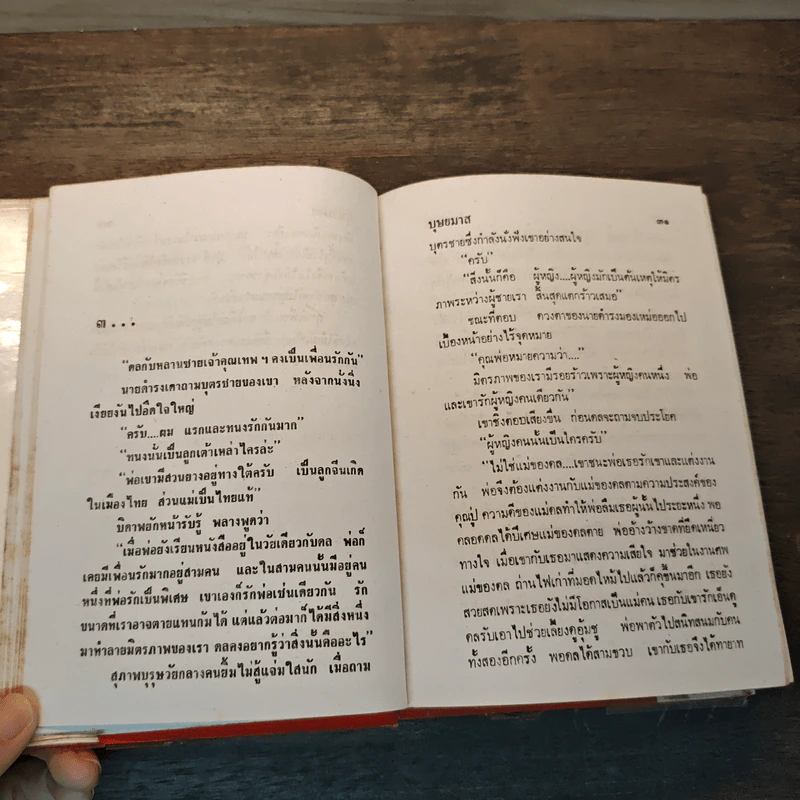 ๓...
“ดลกับหลานชายเจ้าคุณเทพ ฯ คงเป็นเพื่อนรักกัน”
นายดำรงเดาถามบุตรชายของเขา หลังจากนั่งนิ่ง
เงียบงันไปอึดใจใหญ่
“ครับ....ผม แรกและทนงรักกันมาก”
“ทนงนั่นเป็นลูกเต้าเหล่าใครล่ะ”
“พ่อเขามีสวนยางอยู่ทางใต้ครับ เป็นลูกจีนเกิด
ในเมืองไทย ส่วนแม่เป็นไทยแท้”
บิดาพยักหน้ารับรู้ พลางพูดว่า
“เมื่อพ่อยังเรียนหนังสืออยู่ในวัยเดียวกับดล พ่อก็
เคยมีเพื่อนรักมากอยู่สามคน และในสามคนนั้นมีอยู่คน
หนึ่งที่พ่อรักเป็นพิเศษ เขาเองก็รักพ่อเช่นเดียวกัน รัก
ขนาดที่เราอาจตายแทนกันได้ แต่แล้วต่อมาก็ได้มีสิ่งหนึ่ง
มาทำลายมิตรภาพของเรา ดลลองอยากรู้ว่าสิ่งนั้นคืออะไร”
สุภาพบุรุษวัยกลางคนยิ้มไม่สู้แจ่มใสนัก เมื่อถาม
บุษยมาส ๓๑
บุตรชายซึ่งกำลังนั่งฟังเขาอย่างสนใจ
“ครับ”
“สิ่งนั้นก็คือ ผู้หญิง....ผู้หญิงมักเป็นต้นเหตุให้มิตร
ภาพระหว่างผู้ชายเรา สิ้นสุดแตกร้าวเสมอ”
ขณะที่ตอบ ดวงตาของนายดำรงมองเหม่อออกไป
เบื้องหน้าอย่างไร้จุดหมาย
“คุณพ่อหมายความว่า....”
มิตรภาพของเรามีรอยร้าวเพราะผู้หญิงคนหนึ่ง พ่อ
และเขารักผู้หญิงคนเดียวกัน”
เขาชิงตอบเสียงขื่น ก่อนดลจะถามจบประโยค
“ผู้หญิงคนนั้นเป็นใครครับ”
“ไม่ใช่แม่ของดล....เขาชนะพ่อเธอรักเขาและแต่งงาน
กัน พ่อจึงต้องแต่งงานกับแม่ของดลตามความประสงค์ของ
คุณปู่ ความดีของแม่ดลทำให้พ่อลืมเธอผู้นั้นไประยะหนึ่ง พอ
คลอดดลได้ปีเศษแม่ของดลตาย พ่ออ้างว้างขาดที่ยึดเหนี่ยว
ทางใจ เมื่อเขากับเธอมาแสดงความเสียใจ มาช่วยในงานศพ
แม่ของดล ถ่านไฟเก่าที่มอดไหม้ไปแล้วก็คุขึ้นมาอีก เธอยัง
สวยสดเพราะเธอยังไม่มีโอกาสเป็นแม่คน เธอกับเขารักเอ็นดู
ดลรับเอาไปช่วยเลี้ยงดูอุ้มชู พ่อพาตัวไปสนิทสนมกับคน
ทั้งสองอีกครั้ง พอดลได้สามขวบ เขากับเธอจึงได้ทายาท